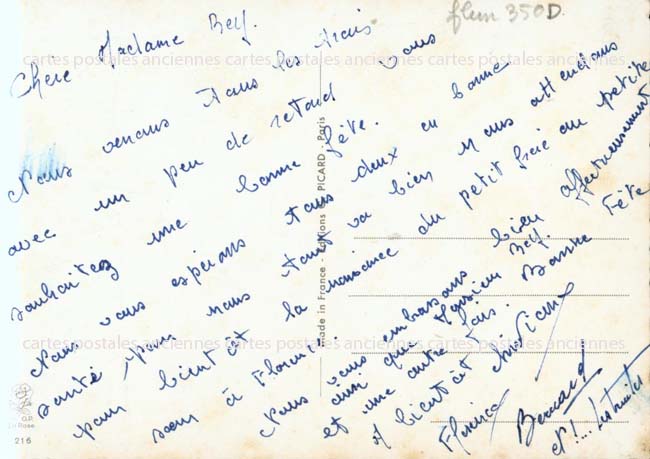 flum 350D.
Chère Madame Belf.
Nous venons tous les trois
avec un peu de retard vous
souhaitez une bonne fête.
Nous vous espérons tous deux en bonne
santé, pour nous tout va bien nous attendions
pour bientôt la naissance du petit frère ou petite
sœur à Florence.
Nous vous embrassons bien affectueusement
ainsi que Monsieur Belf.
et une autre fois. Bonne Fête
et bientôt
Christiane
Florence
Bernard
et !...
cartes postales anciennes cartes postales anciennes cartes postales anciennes
cartes postales anciennes cartes postales anciennes cartes postales anciennes
made in France - Editions PICARD - Paris
G.P.
La Rose
216